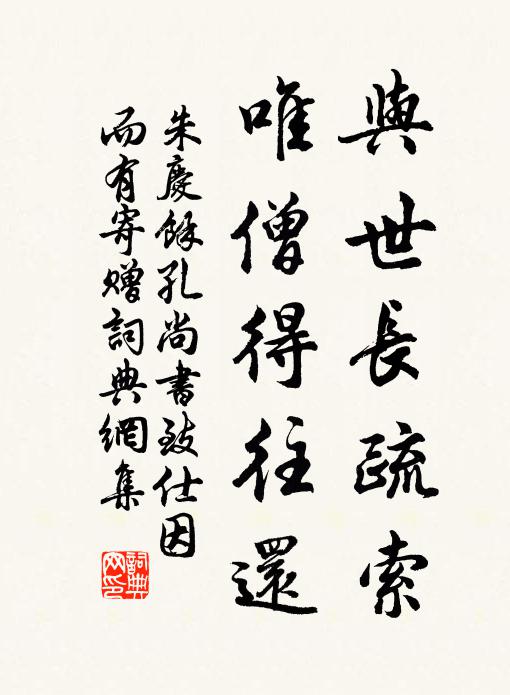 與世長疏索
唯僧得往還
朱慶餘孔尚書致仕因
而有寄贈詞典網集
詞典
网印